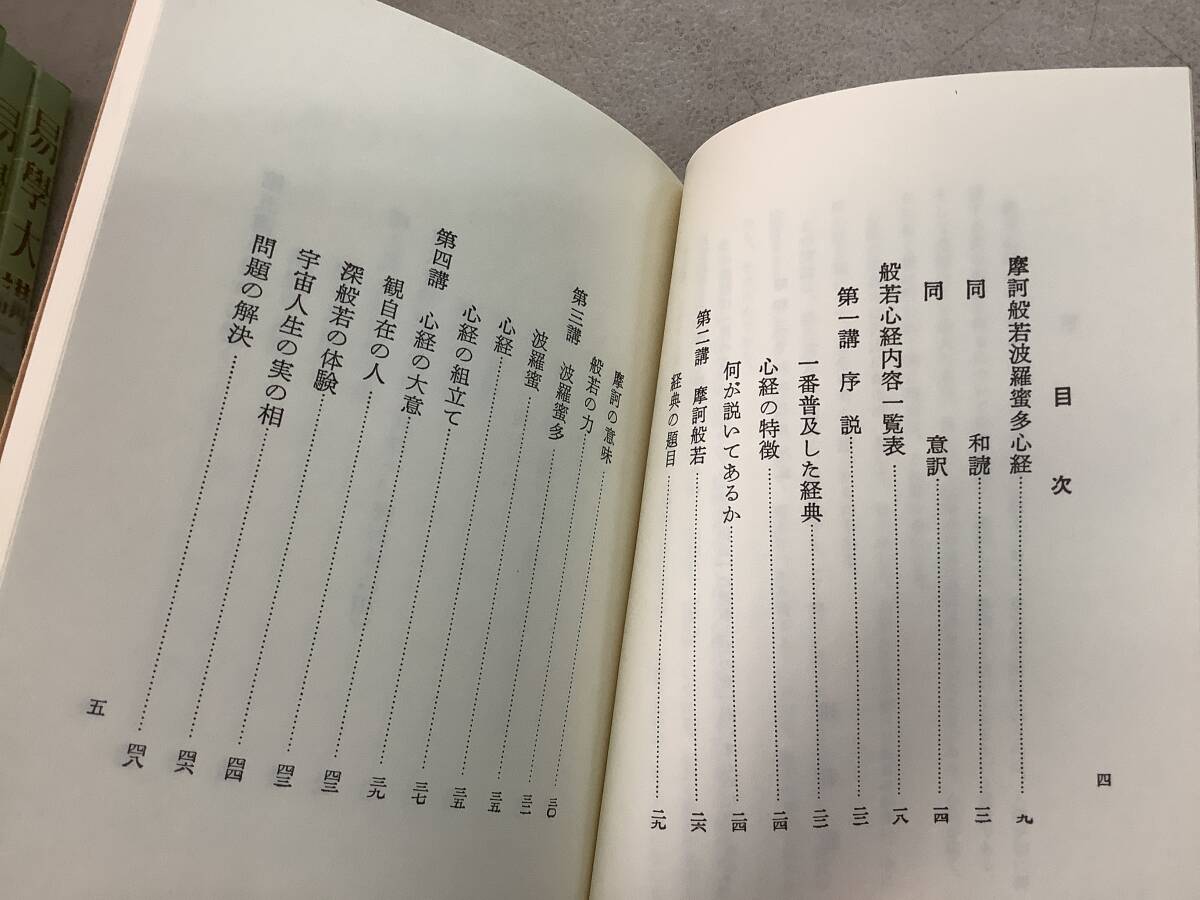 目次
摩訶般若波羅蜜多心経……九
同 和読……一二
同 意訳……一四
般若心経内容一覧表……一八
第一講 序説……二二
一番普及した経典……二二
心経の特徴……二四
何が説いてあるか……二四
第二講 摩訶般若……二六
経典の題目……二九
四
摩訶の意味……三〇
般若の力……三二
第三講 波羅蜜多……三五
波羅蜜……三五
心経……三七
心経の組立て……三九
第四講 心経の大意……四三
観自在の人……四三
深般若の体験……四四
宇宙人生の実の相……四六
問題の解決……四八
五
易學大